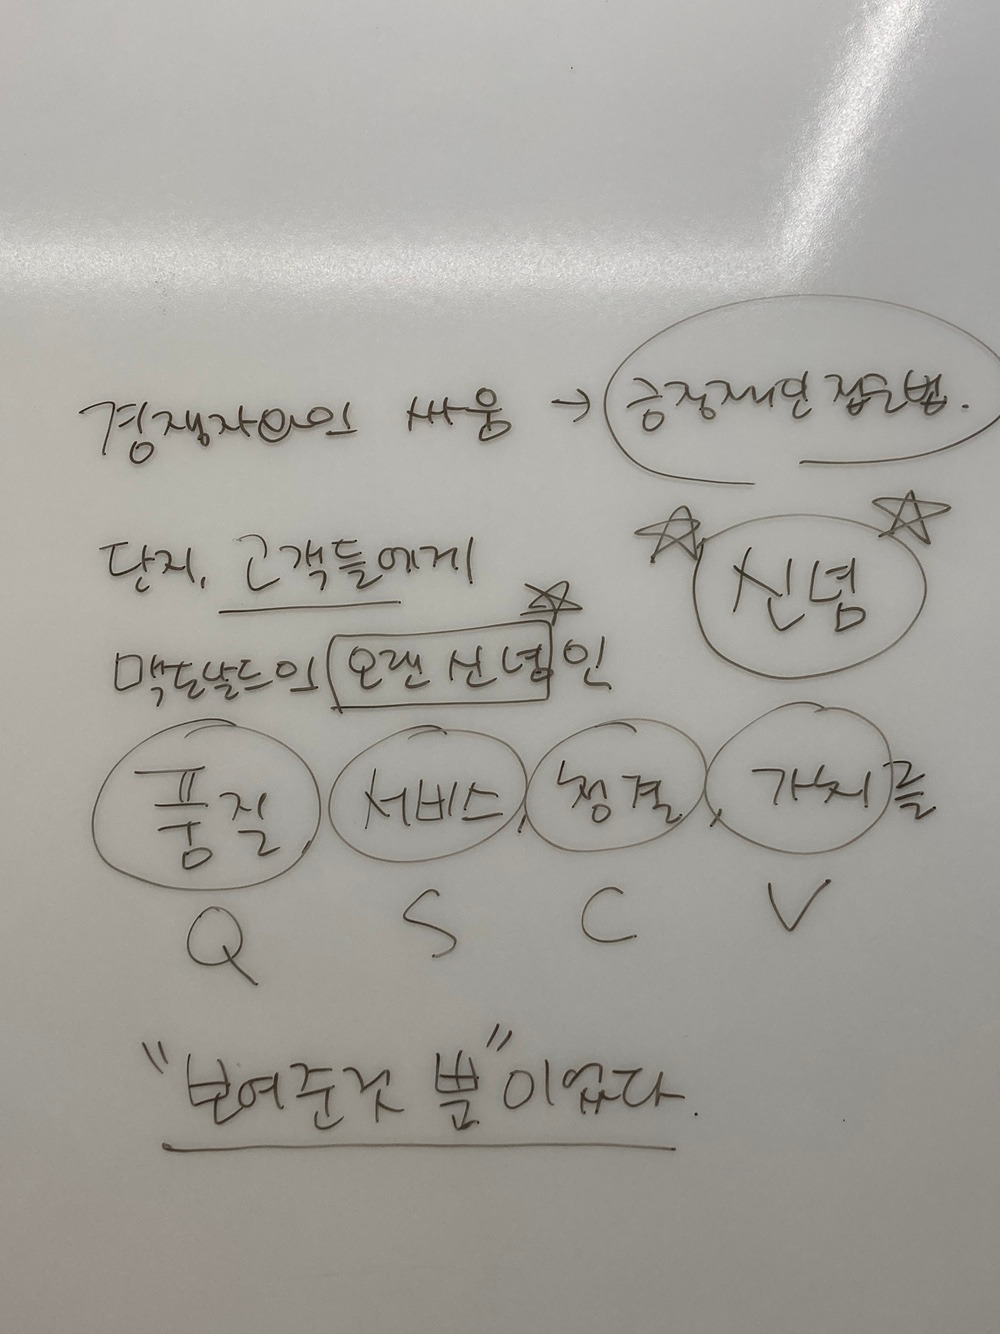 경쟁자와의 싸움 → 긍정적인 접근법.
단지, 고객들에게
신념
맥도날드의 오랜 신념인
품질, 서비스, 청결, 가치를
Q S C V
"보여준것 뿐"이었다.